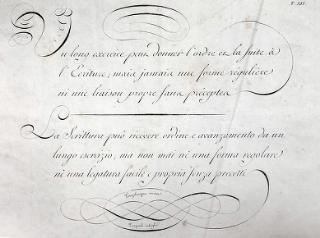 Un long exercice peut donner l'ordre et la suite à
l'Ecriture; mais jamais une forme régulière
ni une liaison propre sans préceptes
La Scrittura può ricevere ordine e avanzamento da un
lungo esercizio, ma non mai nè una forma regolare
nè una legatura facile e propria senza precetti